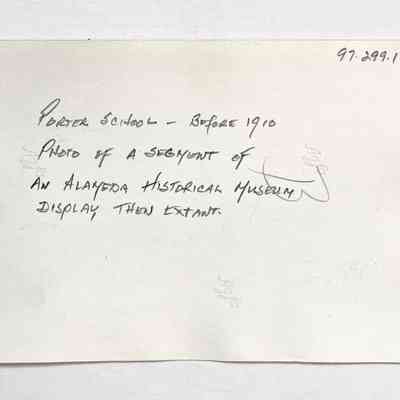 97.299.1
Porter School – Before 1910
Photo of a segment of
an Alameda Historical Museum
display then extant.